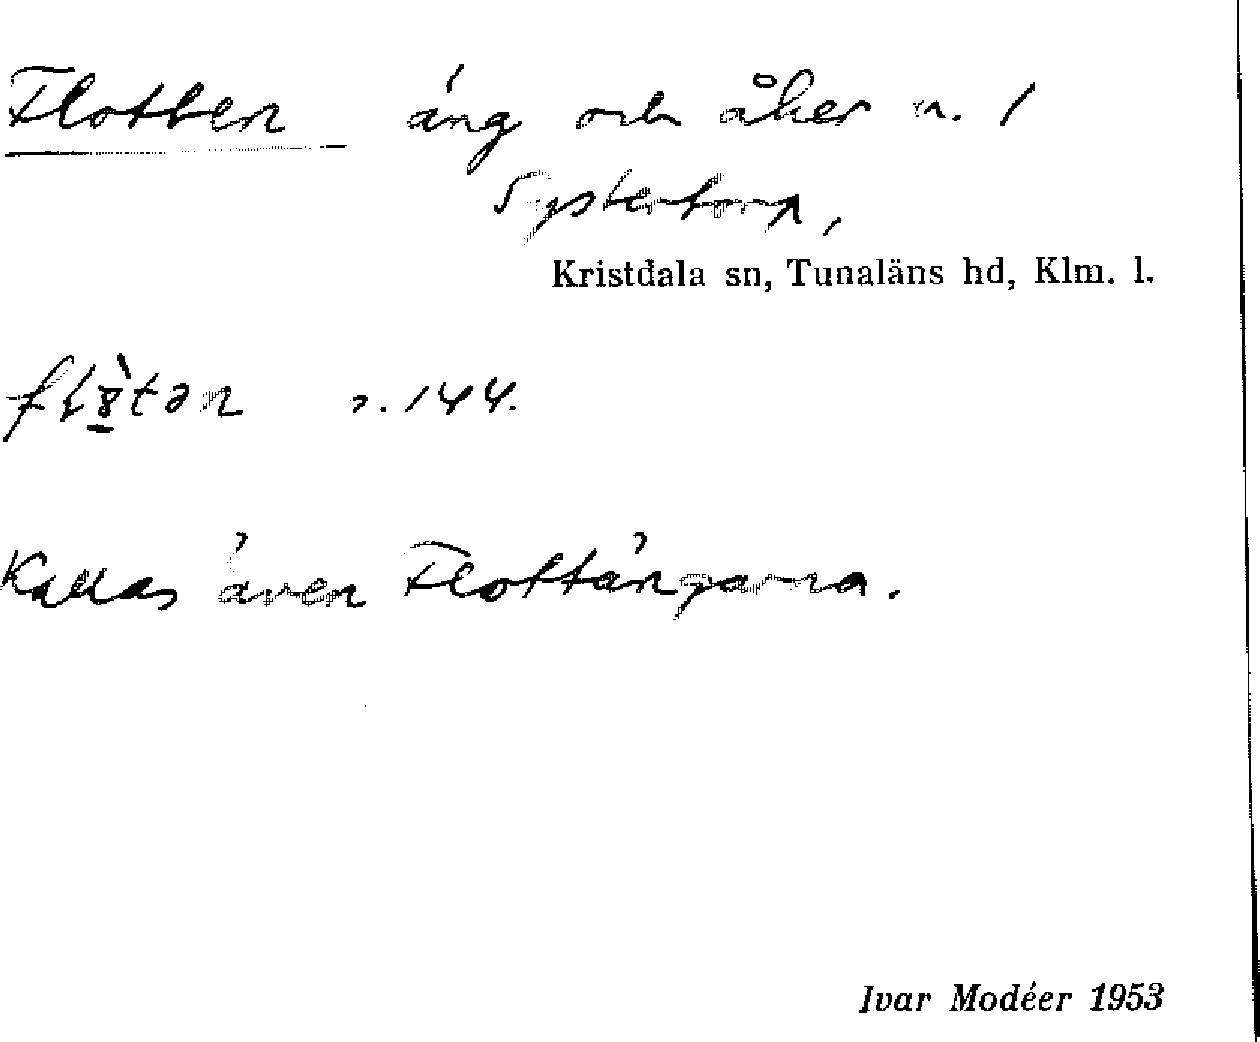 Flotten äng och åker n. 1
Systertorp,
Kristdala sn, Tunaläns hd, Klm. l.
n. 144.
Kallas även Flottängarna.
Ivar Modéer 1953